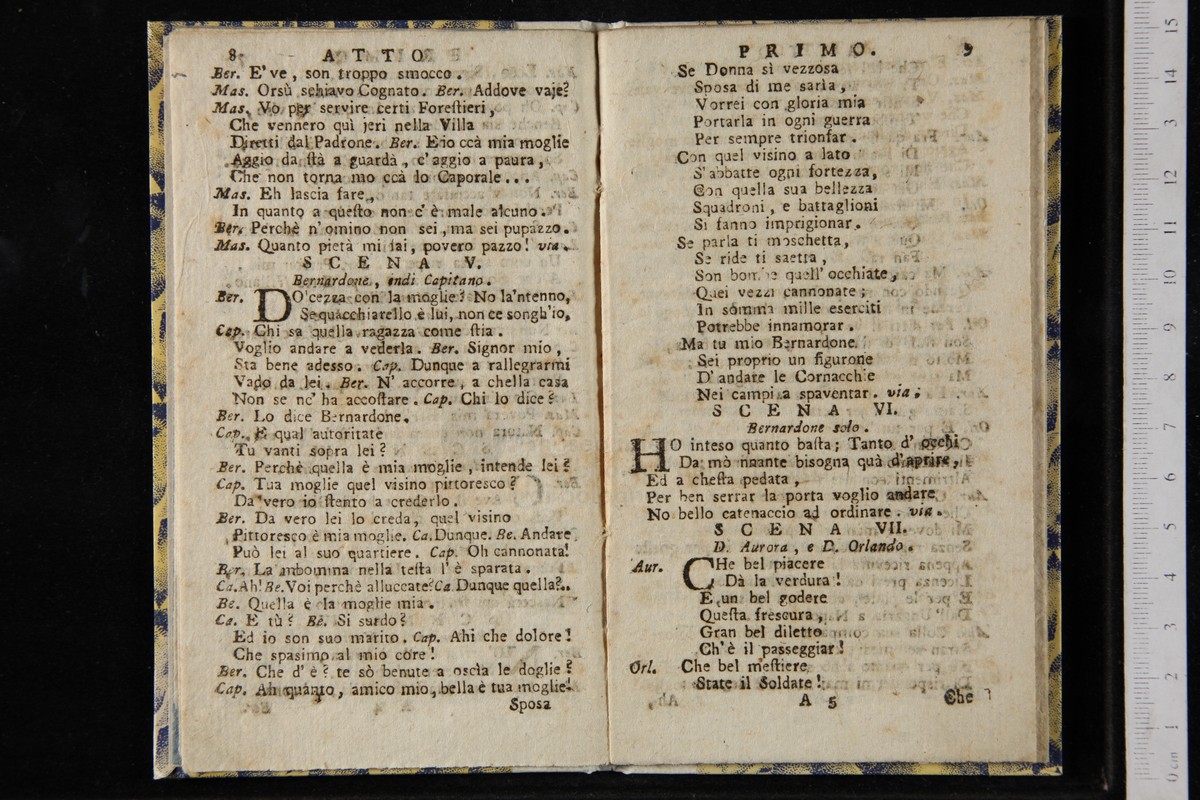 8 ATTO
Ber. E've, son troppo smocco.
Mas. Orsù schiavo Cognato. Ber. Addove vaje?
Mas. Vo per servire certi Forestieri,
Che vennero quì jeri nella Villa
Diretti dal Padrone. Ber. E io ccà mia moglie
Aggio da stà a guardà, c'aggio a paura,
Che non torna mo ccà lo Caporale...
Mas. Eh lascia fare,
In quanto a questo non c'è male alcuno.
Ber. Perchè n'omino non sei, ma sei pupazzo.
Mas. Quanto pietà mi fai, povero pazzo! via.
SCENA V.
Bernardone, indi Capitano.
Ber. DO'cezza con la moglie? No la'ntenno,
Se quacchiarello è lui, non ce songh'io,
Cap. Chi sa quella ragazza come stia.
Voglio andare a vederla. Ber. Signor mio,
Sta bene adesso. Cap. Dunque a rallegrarmi
Vado da lei. Ber. N'accorre, a chella casa
Non se nc'ha accostare. Cap. Chi lo dice?
Ber. Lo dice Bernardone.
Cap. E qual autoritate
Tu vanti sopra lei?
Ber. Perchè quella è mia moglie, intende lei?
Cap. Tua moglie quel visino pittoresco?
Da vero io stento a crederlo.
Ber. Da vero lei lo creda, quel visino
Pittoresco è mia moglie. Ca. Dunque. Be. Andare
Può lei al suo quartiere. Cap. Oh cannonata!
Ber. La mbomma nella testa l'è sparata.
Ca. Ah! Be. Voi perchè alluccate? Ca Dunque quella?..
Be. Quella è la moglie mia.
Ca. E tù? Be. Si surdo?
Ed io son suo marito. Cap. Ahi che dolore!
Che spasimo al mio core!
Ber. Che d'è? te sò benute a oscia le doglie?
Cap. Ah quanto, amico mio, bella è tua moglie!
Sposa
PRIMO. 9
Se Donna sì vezzosa
Sposa di me saria,
Vorrei con gloria mia
Portarla in ogni guerra
Per sempre trionfar.
Con quel visino a lato
S'abbatte ogni fortezza,
Con quella sua bellezza
Squadroni, e battaglioni
Si fanno imprigionar.
Se parla ti moschetta,
Se ride ti saetta,
Son bombe quell'occhiate,
Quei vezzi cannonate;
In somma mille eserciti
Potrebbe innamorar.
Ma tu mio Bernardone
Sei proprio un figurone
D'andare le Cornacchie
Nei campi a spaventar. via.
SCENA VI.
Bernardone solo.
HO inteso quanto basta; Tanto d'occhi
Da mò nnante bisogna quà d'aprire,
Ed a chesta pedata,
Per ben serrar la porta voglio andare
No bello catenaccio ad ordinare. via.
SCENA VII.
D. Aurora, e D. Orlando.
Aur. CHe bel piacere
Dà la verdura!
E un bel godere
Questa frescura,
Gran bel diletto
Ch'è il passeggiar!
Orl. Che bel mestiere
State il Soldate!
A 5 Che